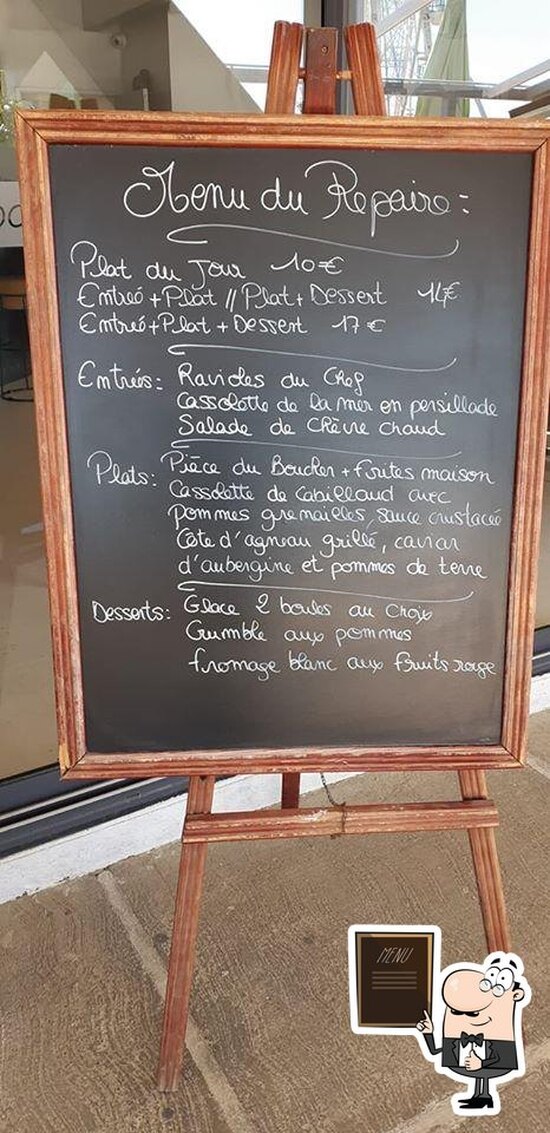 Menu du Repaire :
Plat du Jour 10€
Entreé + Plat // Plat + Dessert 14€
Entreé + Plat + Dessert 17€
Entrés : Ravioles du Chef
Cassolette de la mer en persillade
Salade de Chèvre chaud
Plats : Pièce du Boucher + frites maison
Cassolette de Cabillaud avec
pommes grenailles, sauce crustacée
Côte d'agneau grillé, caviar
d'aubergine et pommes de terre
Desserts : Glace 2 boules au choix
Crumble aux pommes
fromage blanc aux fruits rouge
MENU